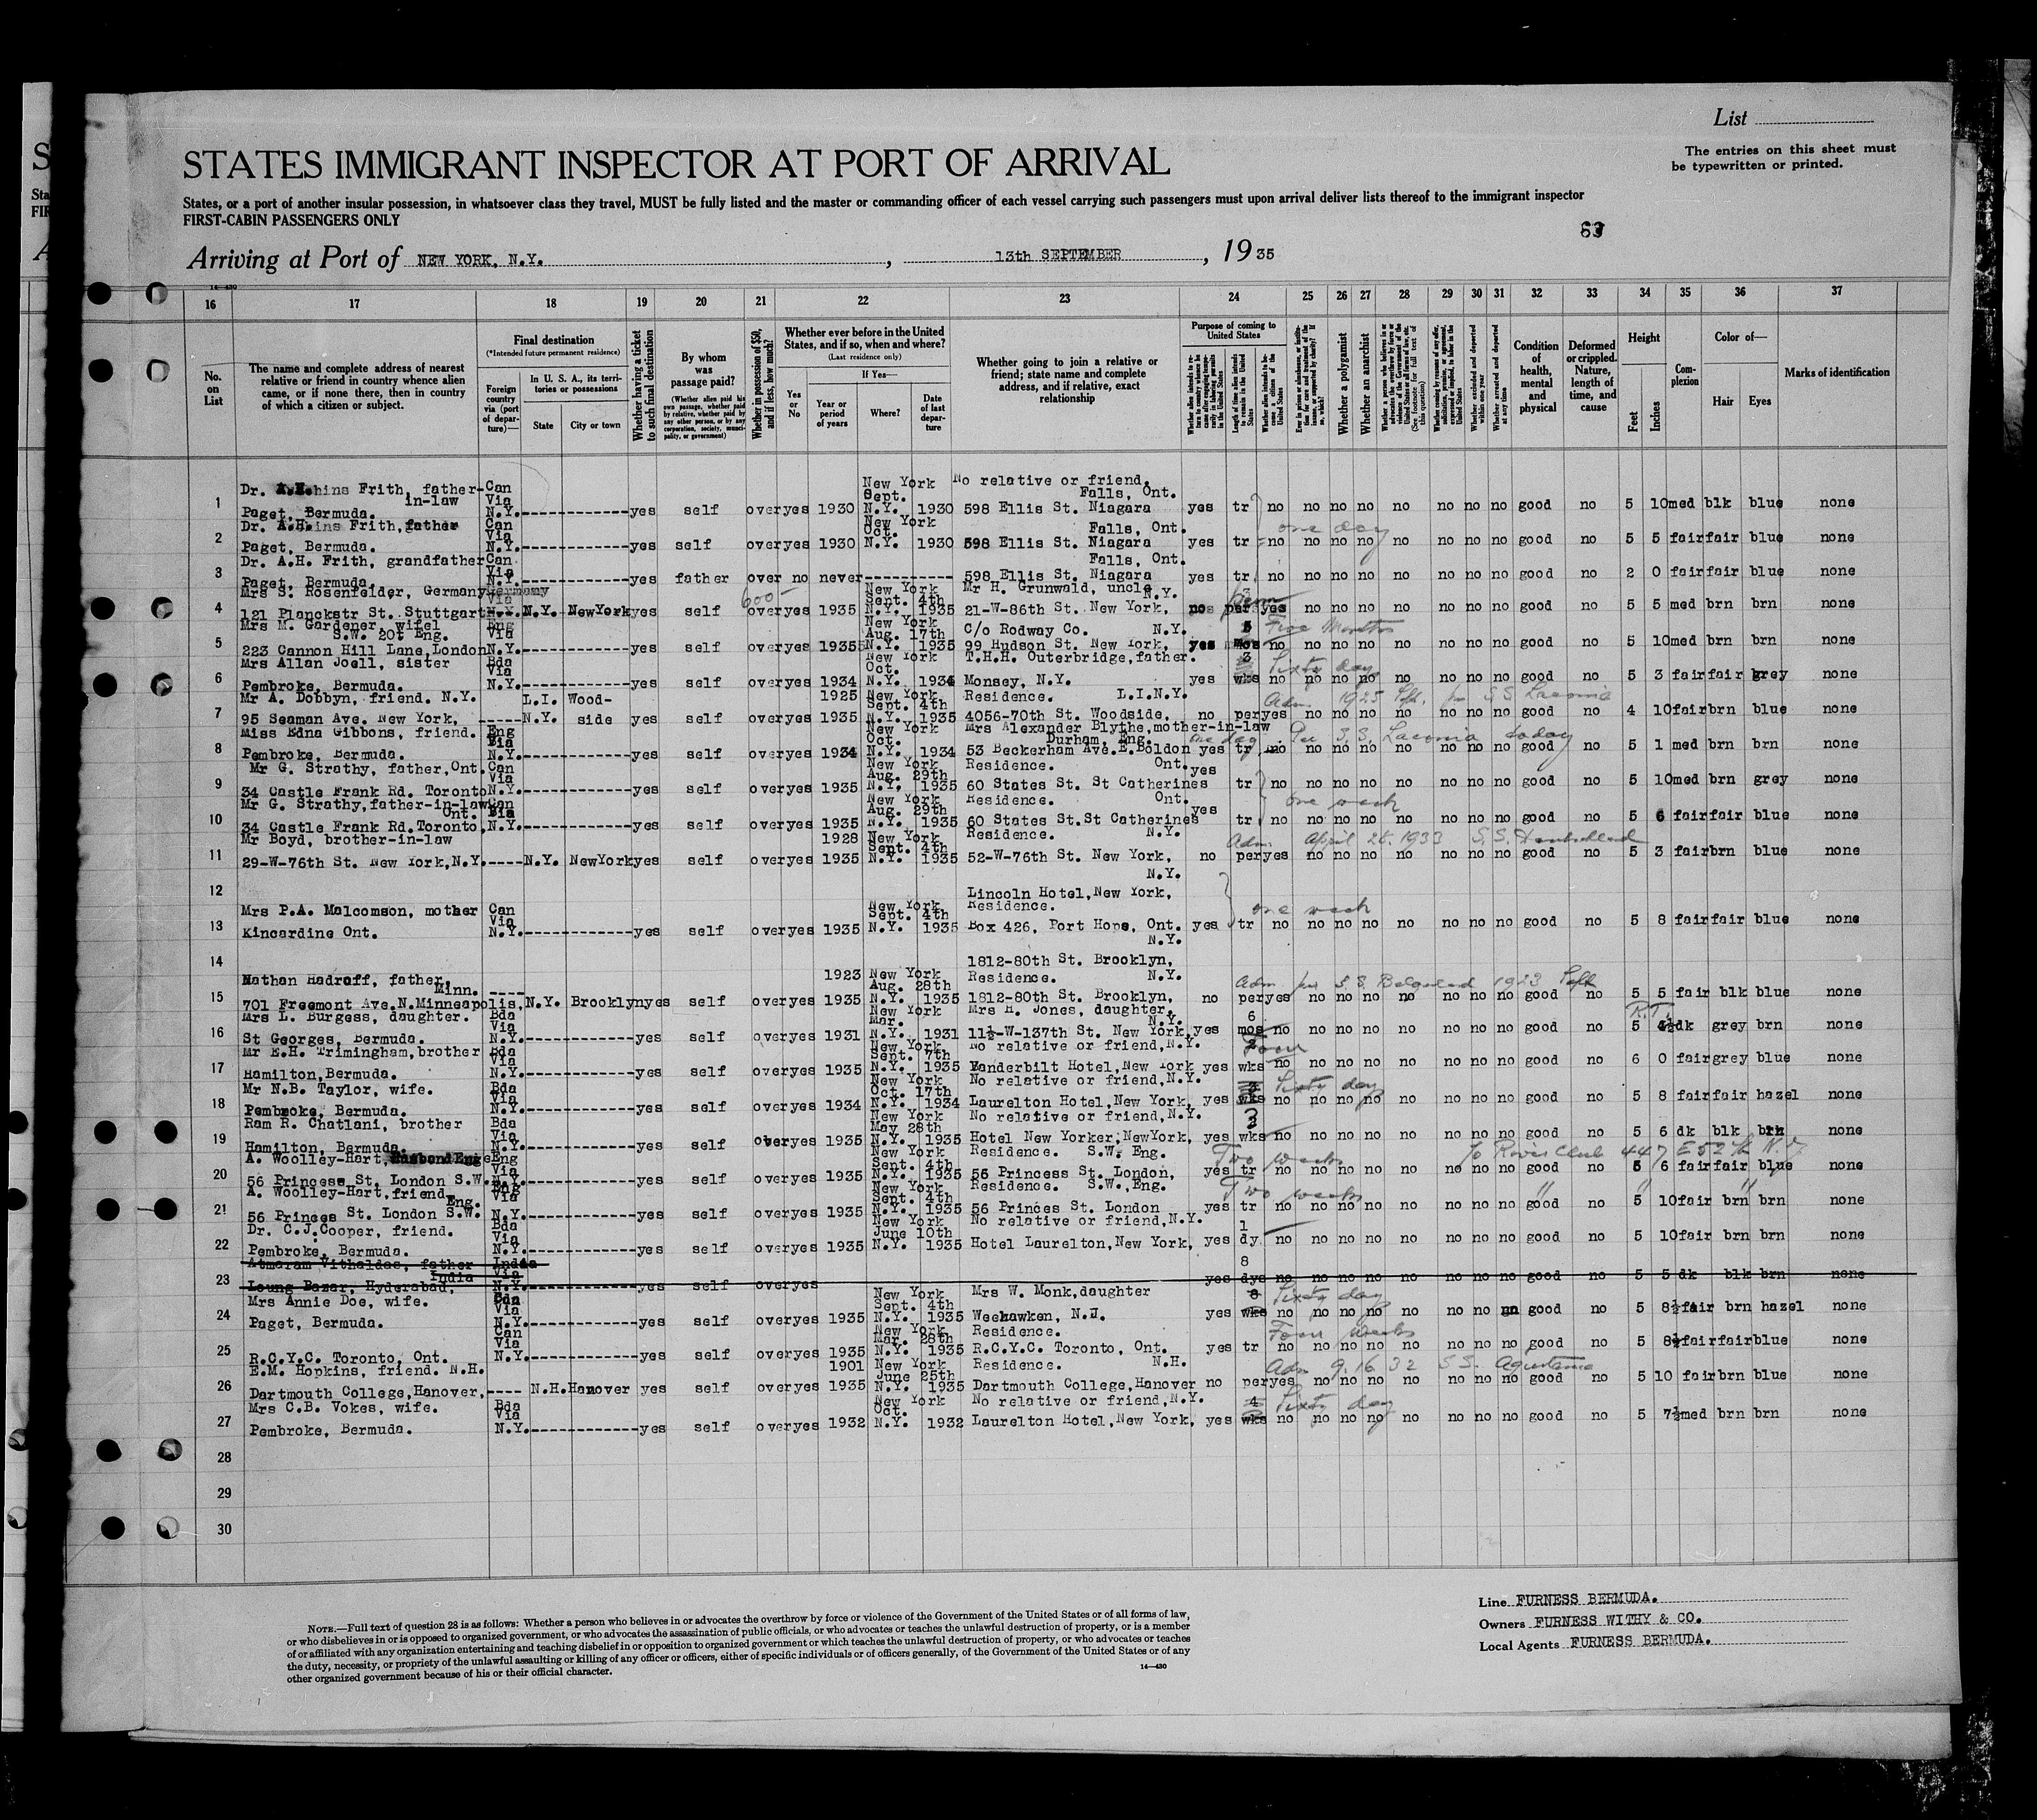 List
STATES IMMIGRANT INSPECTOR AT PORT OF ARRIVAL
The entries on this sheet must
be typewritten or printed.
States, or a port of another insular possession, in whatsoever class they travel, MUST be fully listed and the master or commanding officer of each vessel carrying such passengers must upon arrival deliver lists thereof to the immigrant inspector
FIRST-CABIN PASSENGERS ONLY
Arriving at Port of NEW YORK, N.Y., 13th SEPTEMBER, 19 35
14-430
16 17 18 19 20 21 22 23 24 25 26 27 28 29 30 31 32 33 34 35 36 37
No. on List
The name and complete address of nearest relative or friend in country whence alien came, or if none there, then in country of which a citizen or subject.
Final destination
(*Intended future permanent residence)
Foreign country via (port of departure)—
In U. S. A., its territories or possessions
State City or town
Whether having a ticket to such final destination
By whom was passage paid?
(Whether alien paid his own passage, whether paid by relative, whether paid by any other person, or by any corporation, society, municipality, or government)
Whether in possession of $50, and if less, how much?
Whether ever before in the United States, and if so, when and where?
(Last residence only)
Yes or No
If Yes—
Year or period of years
Where?
Date of last departure
Whether going to join a relative or friend; state name and complete address, and if relative, exact relationship
Purpose of coming to United States
Length of time alien intends to remain in the United States
Whether alien intends to become a citizen of the United States
Whether a polygamist
Whether an anarchist
Whether arrested and deported at any time
Condition of health, mental and physical
Deformed or crippled. Nature, length of time, and cause
Height
Feet Inches
Complexion
Color of—
Hair Eyes
Marks of identification
1 Dr. A.H. Frith, father-in-law Paget, Bermuda. Can Via N.Y. yes self over yes 1930 New York Sept. N.Y. 1930 No relative or friend, 598 Ellis St. Niagara Falls, Ont. yes tr no no no no no no no no good no 5 10 med blk blue none
one day
2 Dr. A.H. Frith, father Paget, Bermuda. Can Via N.Y. yes self over yes 1930 New York Oct. N.Y. 1930 598 Ellis St. Niagara Falls, Ont. yes tr no no no no no no no no good no 5 5 fair fair blue none
3 Dr. A.H. Frith, grandfather Paget, Bermuda. Can Via N.Y. yes father over no never 598 Ellis St. Niagara Falls, Ont. yes tr no no no no no no no no good no 2 0 fair fair blue none
4 Mrs S. Rosenfelder, Germany 121 Planckstr St. Stuttgart Germany Via N.Y. N.Y. NewYork yes self 600 over yes 1935 New York Sept. 4th N.Y. 1935 Mr H. Grunwald, uncle 21-W-86th St. New York, N.Y. no per yes no no no no no no no good no 5 5 med brn brn none
5 Mrs M. Gardener, wife 223 Cannon Hill Lane, London S.W. 20 Eng. Eng Via N.Y. yes self over yes 1935 New York Aug. 17th N.Y. 1935 C/o Rodway Co. 99 Hudson St. New York, N.Y. yes mos no no no no no no no no good no 5 10 med brn brn none
Five Months
6 Mrs Allan Joell, sister Pembroke, Bermuda. Bda Via N.Y. yes self over yes 1934 New York Oct. N.Y. 1934 T.H.H. Outerbridge, father. Monsey, N.Y. yes 3 wks no no no no no no no no good no 5 3 fair fair grey none
Sixty day
7 Mr A. Dobbyn, friend. N.Y. 95 Seaman Ave. New York, L.I. N.Y. Wood-side yes self over yes 1925 1935 New York Sept. 4th N.Y. 1935 Residence. 4056-70th St. Woodside, L.I.N.Y. no per yes no no no no no no no good no 4 10 fair brn blue none
Adm 1925 SS Laconia
8 Miss Edna Gibbons, friend. Pembroke, Bermuda. Eng Via N.Y. yes self over yes 1934 New York Oct. N.Y. 1934 Mrs Alexander Blythe, mother-in-law 53 Beckerham Ave. E. Boldon Durham, Eng. yes tr no no no no no no no no good no 5 1 med brn brn none
one day Per S.S. Laconia today
9 Mr G. Strathy, father, Ont. 34 Castle Frank Rd. Toronto Can Via N.Y. yes self over yes 1935 New York Aug. 29th N.Y. 1935 Residence. 60 States St. St Catherines Ont. yes tr no no no no no no no no good no 5 10 med brn grey none
one week
10 Mr G. Strathy, father-in-law 34 Castle Frank Rd. Toronto, Ont. Can Via N.Y. yes self over yes 1935 New York Aug. 29th N.Y. 1935 Residence. 60 States St. St Catherines Ont. yes tr no no no no no no no no good no 5 6 fair fair blue none
11 Mr Boyd, brother-in-law 29-W-76th St. New York, N.Y. N.Y. NewYork yes self over yes 1928 1935 New York Sept. 4th N.Y. 1935 Residence. 52-W-76th St. New York, N.Y. no per yes no no no no no no no good no 5 3 fair brn blue none
Adm. April 26. 1933 S.S.
12 Lincoln Hotel, New York, N.Y.
13 Mrs P.A. Malcomson, mother Kincardine Ont. Can Via N.Y. yes self over yes 1935 New York Sept. 4th N.Y. 1935 Residence. Box 426, Port Hope, Ont. yes tr no no no no no no no no good no 5 8 fair fair blue none
one week
14 1812-80th St. Brooklyn, N.Y.
15 Nathan Hadroff, father, 701 Freemont Ave. N. Minneapolis, Minn. N.Y. Brooklyn yes self over yes 1923 1935 New York Aug. 28th N.Y. 1935 Residence. 1812-80th St. Brooklyn, N.Y. no per yes no no no no no no no good no 5 5 fair blk blue none
Adm per S.S. Belgenland 1923 Sept
16 Mrs L. Burgess, daughter. St Georges, Bermuda. Bda Via N.Y. yes self over yes 1931 New York Mar. N.Y. 1931 Mrs H. Jones, daughter, 11½-W-137th St. New York, N.Y. yes 6 mos no no no no no no no no good no 5 4½ dk grey brn none
R.T.
17 Mr E.H. Trimingham, brother Hamilton, Bermuda. Bda Via N.Y. yes self over yes 1935 New York Sept. 7th N.Y. 1935 No relative or friend, Vanderbilt Hotel, New York N.Y. yes 2 wks no no no no no no no no good no 6 0 fair grey blue none
Four
18 Mr N.B. Taylor, wife. Pembroke, Bermuda. Bda Via N.Y. yes self over yes 1934 New York Oct. 17th N.Y. 1934 No relative or friend, Laurelton Hotel, New York, N.Y. yes wks no no no no no no no no good no 5 8 fair fair hazel none
Sixty day
19 Ram R. Chatlani, brother Hamilton, Bermuda. Bda Via N.Y. yes self over yes 1935 New York May 28th N.Y. 1935 No relative or friend, Hotel New Yorker, NewYork, N.Y. yes 3 wks no no no no no no no no good no 5 6 dk blk brn none
20 A. Woolley-Hart, 56 Princess St. London S.W. Eng Via N.Y. yes self over yes 1935 New York Sept. 4th N.Y. 1935 Residence. 56 Princess St. London, S.W. Eng. yes tr no no no no no no no no good no 5 6 fair fair blue none
Two weeks River Club 447 E 52 N.Y.
21 A. Woolley-Hart, friend 56 Princes St. London S.W. Eng. Eng Via N.Y. yes self over yes 1935 New York Sept. 4th N.Y. 1935 Residence. 56 Princes St. London S.W., Eng. yes tr no no no no no no no no good no 5 10 fair brn brn none
Two weeks " " "
22 Dr. C.J. Cooper, friend. Pembroke, Bermuda. Bda Via N.Y. yes self over yes 1935 New York June 10th N.Y. 1935 No relative or friend, Hotel Laurelton, New York, N.Y. yes 1 dy no no no no no no no no good no 5 10 fair brn brn none
23 Atmaram Vithaldas, father Loung Bazar, Hyderabad, India India Via N.Y. yes self over yes yes 8 dys no no no no no no no no good no 5 5 dk blk brn none
24 Mrs Annie Doe, wife. Paget, Bermuda. Bda Via N.Y. yes self over yes 1935 New York Sept. 4th N.Y. 1935 Mrs W. Monk, daughter Weehawken, N.J. yes 8 wks no no no no no no no no good no 5 8½ fair brn hazel none
Sixty day
25 R.C.Y.C. Toronto, Ont. Can Via N.Y. yes self over yes 1935 New York Mar. 28th N.Y. 1935 Residence. R.C.Y.C. Toronto, Ont. yes tr no no no no no no no no good no 5 8½ fair fair blue none
Four weeks
26 E.M. Hopkins, friend. N.H. Dartmouth College, Hanover, N.H. Hanover yes self over yes 1901 1935 New York June 25th N.Y. 1935 Residence. Dartmouth College, Hanover N.H. no per yes no no no no no no no good no 5 10 fair brn blue none
Adm 9.16 32 SS.
27 Mrs C.B. Vokes, wife. Pembroke, Bermuda. Bda Via N.Y. yes self over yes 1932 New York Oct. N.Y. 1932 No relative or friend, Laurelton Hotel, New York, N.Y. yes 4 wks no no no no no no no no good no 5 7½ med brn brn none
Sixty day
28
29
30
NOTE.—Full text of question 28 is as follows: Whether a person who believes in or advocates the overthrow by force or violence of the Government of the United States or of all forms of law,
or who disbelieves in or is opposed to organized government, or who advocates the assassination of public officials, or who advocates or teaches the unlawful destruction of property, or is a member
of or affiliated with any organization entertaining and teaching disbelief in or opposition to organized government or which teaches the unlawful destruction of property, or who advocates or teaches
the duty, necessity, or propriety of the unlawful assaulting or killing of any officer or officers, either of specific individuals or of officers generally, of the Government of the United States or of any
other organized government because of his or their official character.
14—430
Line FURNESS BERMUDA.
Owners FURNESS WITHY & CO.
Local Agents FURNESS BERMUDA.